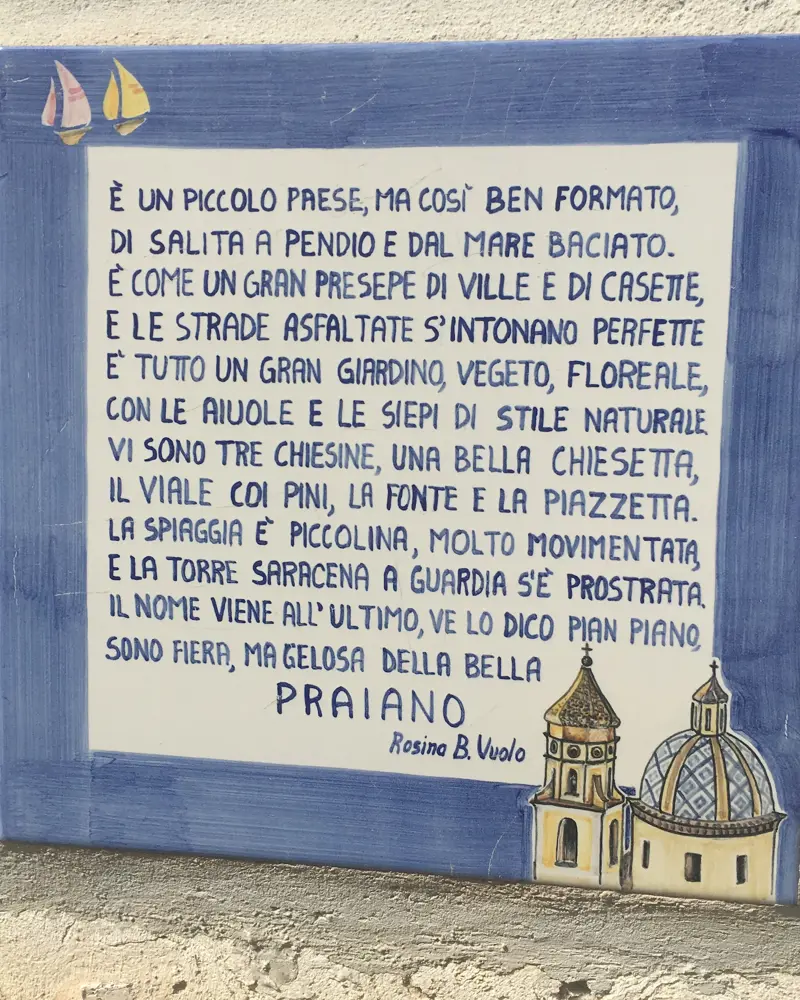 È UN PICCOLO PAESE, MA COSÌ BEN FORMATO,
DI SALITA A PENDIO E DAL MARE BACIATO.
È COME UN GRAN PRESEPE DI VILLE E DI CASETTE,
E LE STRADE ASFALTATE S'INTONANO PERFETTE
E' TUTTO UN GRAN GIARDINO, VEGETO, FLOREALE,
CON LE AIUOLE E LE SIEPI DI STILE NATURALE.
VI SONO TRE CHIESINE, UNA BELLA CHIESETTA,
IL VIALE COI PINI, LA FONTE E LA PIAZZETTA.
LA SPIAGGIA È PICCOLINA, MOLTO MOVIMENTATA,
E LA TORRE SARACENA A GUARDIA S'È PROSTRATA.
IL NOME VIENE ALL'ULTIMO, VE LO DICO PIAN PIANO,
SONO FIERA, MA GELOSA DELLA BELLA
PRAIANO
Rosina B. Vuolo